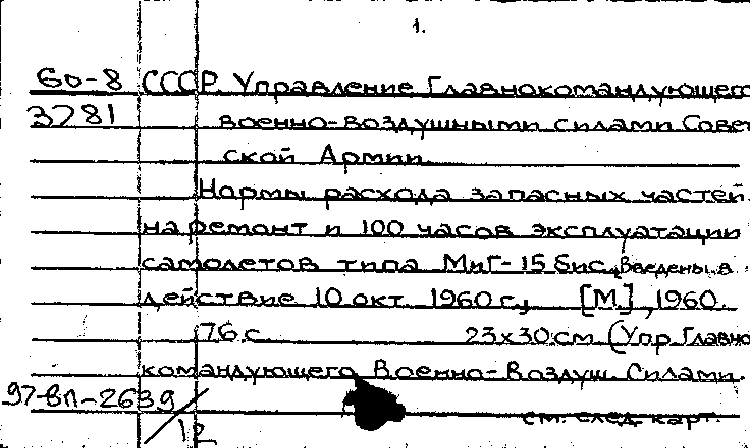 1.
60-8 СССР. Управление Главнокомандующего
3781 военно-воздушными силами Совет
ской Армии.
Нормы расхода запасных частей
на ремонт и 100 часов эксплуатации
самолетов типа МиГ-15 бис. Введены в
действие 10 окт. 1960 г., [М], 1960.
76 с. 23х30 см (Упр. Главно
командующего Военно-Воздуш. Силами.
97-ВП-2639/12
см. след. карт.